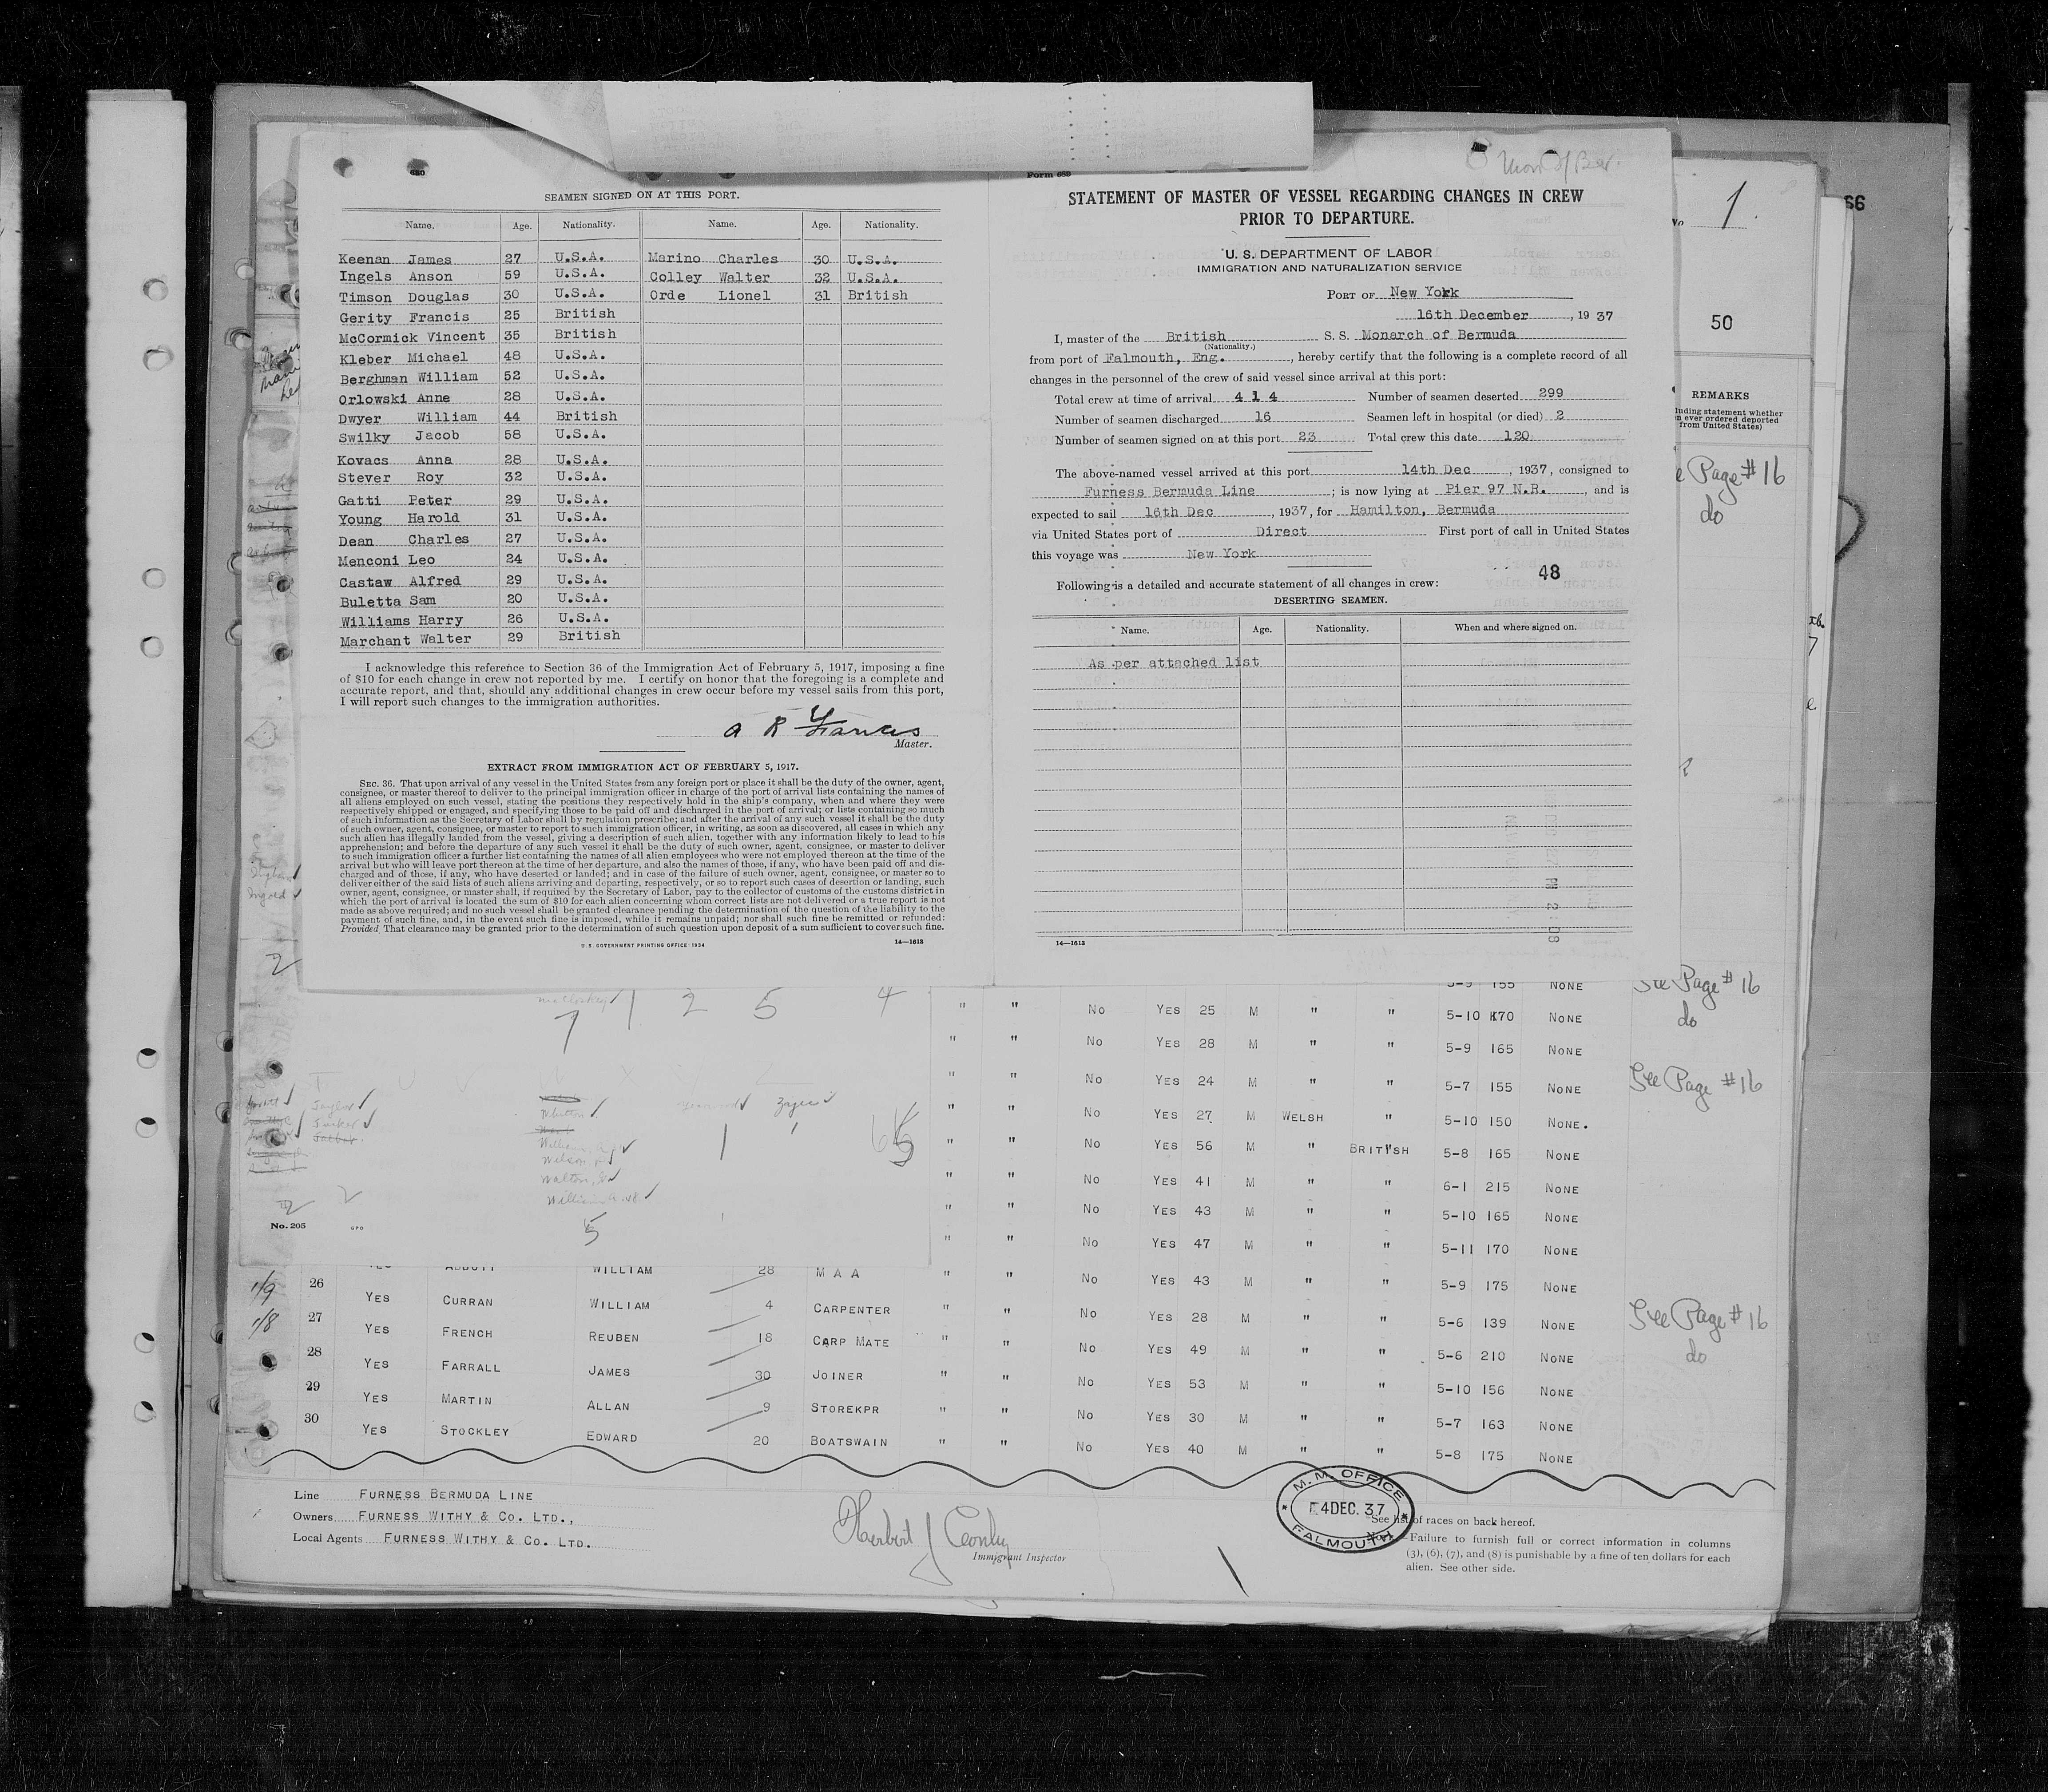 680
SEAMEN SIGNED ON AT THIS PORT.
Name. Age. Nationality. Name. Age. Nationality.
Keenan James 27 U.S.A. Marino Charles 30 U.S.A.
Ingels Anson 59 U.S.A. Colley Walter 32 U.S.A.
Timson Douglas 30 U.S.A. Orde Lionel 31 British
Gerity Francis 25 British
McCormick Vincent 35 British
Kleber Michael 48 U.S.A.
Berghman William 52 U.S.A.
Orlowski Anne 28 U.S.A.
Dwyer William 44 British
Swilky Jacob 58 U.S.A.
Kovacs Anna 28 U.S.A.
Stever Roy 32 U.S.A.
Gatti Peter 29 U.S.A.
Young Harold 31 U.S.A.
Dean Charles 27 U.S.A.
Menconi Leo 24 U.S.A.
Castaw Alfred 29 U.S.A.
Buletta Sam 20 U.S.A.
Williams Harry 26 U.S.A.
Marchant Walter 29 British
I acknowledge this reference to Section 36 of the Immigration Act of February 5, 1917, imposing a fine
of $10 for each change in crew not reported by me. I certify on honor that the foregoing is a complete and
accurate report, and that, should any additional changes in crew occur before my vessel sails from this port,
I will report such changes to the immigration authorities.
A R Francis
Master.
EXTRACT FROM IMMIGRATION ACT OF FEBRUARY 5, 1917.
SEC. 36. That upon arrival of any vessel in the United States from any foreign port or place it shall be the duty of the owner, agent,
consignee, or master thereof to deliver to the principal immigration officer in charge of the port of arrival lists containing the names of
all aliens employed on such vessel, stating the positions they respectively hold in the ship's company, when and where they were
respectively shipped or engaged, and specifying those to be paid off and discharged in the port of arrival; or lists containing so much
of such information as the Secretary of Labor shall by regulation prescribe; and after the arrival of any such vessel it shall be the duty
of such owner, agent, consignee, or master to report to such immigration officer, in writing, as soon as discovered, all cases in which any
such alien has illegally landed from the vessel, giving a description of such alien, together with any information likely to lead to his
apprehension; and before the departure of any such vessel it shall be the duty of such owner, agent, consignee, or master to deliver
to such immigration officer a further list containing the names of all alien employees who were not employed thereon at the time of the
arrival but who will leave port thereon at the time of her departure, and also the names of those, if any, who have been paid off and dis-
charged and of those, if any, who have deserted or landed; and in case of the failure of such owner, agent, consignee, or master so to
deliver either of the said lists of such aliens arriving and departing, respectively, or so to report such cases of desertion or landing, such
owner, agent, consignee, or master shall, if required by the Secretary of Labor, pay to the collector of customs of the customs district in
which the port of arrival is located the sum of $10 for each alien concerning whom correct lists are not delivered or a true report is not
made as above required; and no such vessel shall be granted clearance pending the determination of the question of the liability to the
payment of such fine, and, in the event such fine is imposed, while it remains unpaid; nor shall such fine be remitted or refunded:
Provided, That clearance may be granted prior to the determination of such question upon deposit of a sum sufficient to cover such fine.
U. S. GOVERNMENT PRINTING OFFICE: 1934 14—1613
Form 680
STATEMENT OF MASTER OF VESSEL REGARDING CHANGES IN CREW
PRIOR TO DEPARTURE.
U. S. DEPARTMENT OF LABOR
IMMIGRATION AND NATURALIZATION SERVICE
PORT OF New York
16th December, 1937
I, master of the British S. S. Monarch of Bermuda
(Nationality.)
from port of Falmouth, Eng., hereby certify that the following is a complete record of all
changes in the personnel of the crew of said vessel since arrival at this port:
Total crew at time of arrival 414 Number of seamen deserted 299
Number of seamen discharged 16 Seamen left in hospital (or died) 2
Number of seamen signed on at this port 23 Total crew this date 120
The above-named vessel arrived at this port 14th Dec, 1937, consigned to
Furness Bermuda Line; is now lying at Pier 97 N.R., and is
expected to sail 16th Dec, 1937, for Hamilton, Bermuda
via United States port of Direct First port of call in United States
this voyage was New York
48
Following is a detailed and accurate statement of all changes in crew:
DESERTING SEAMEN.
Name. Age. Nationality. When and where signed on.
As per attached list
14—1613
1.
66
50
REMARKS
See Page #16
do
5-9 155 NONE See Page #16
" " No YES 25 M " " 5-10 170 NONE do
" " No YES 28 M " " 5-9 165 NONE
" " No YES 24 M " " 5-7 155 NONE See Page #16
" " No YES 27 M WELSH " 5-10 150 NONE.
" " No YES 56 M " BRITISH 5-8 165 NONE
" " No YES 41 M " " 6-1 215 NONE
" " No YES 43 M " " 5-10 165 NONE
" " No YES 47 M " " 5-11 170 NONE
No. 205 GPO
ABBOTT WILLIAM 28 M A A " " No YES 43 M " " 5-9 175 NONE
26 YES CURRAN WILLIAM 4 CARPENTER " " No YES 28 M " " 5-6 139 NONE See Page #16
27 YES FRENCH REUBEN 18 CARP MATE " " No YES 49 M " " 5-6 210 NONE do
28 YES FARRALL JAMES 30 JOINER " " No YES 53 M " " 5-10 156 NONE
29 YES MARTIN ALLAN 9 STOREKPR " " No YES 30 M " " 5-7 163 NONE
30 YES STOCKLEY EDWARD 20 BOATSWAIN " " No YES 40 M " " 5-8 175 NONE
Line FURNESS BERMUDA LINE
Owners FURNESS WITHY & CO. LTD.,
Local Agents FURNESS WITHY & CO. LTD.
Immigrant Inspector
M. M. OFFICE
4 DEC. 37
FALMOUTH
See list of races on back hereof.
Failure to furnish full or correct information in columns
(3), (6), (7), and (8) is punishable by a fine of ten dollars for each
alien. See other side.